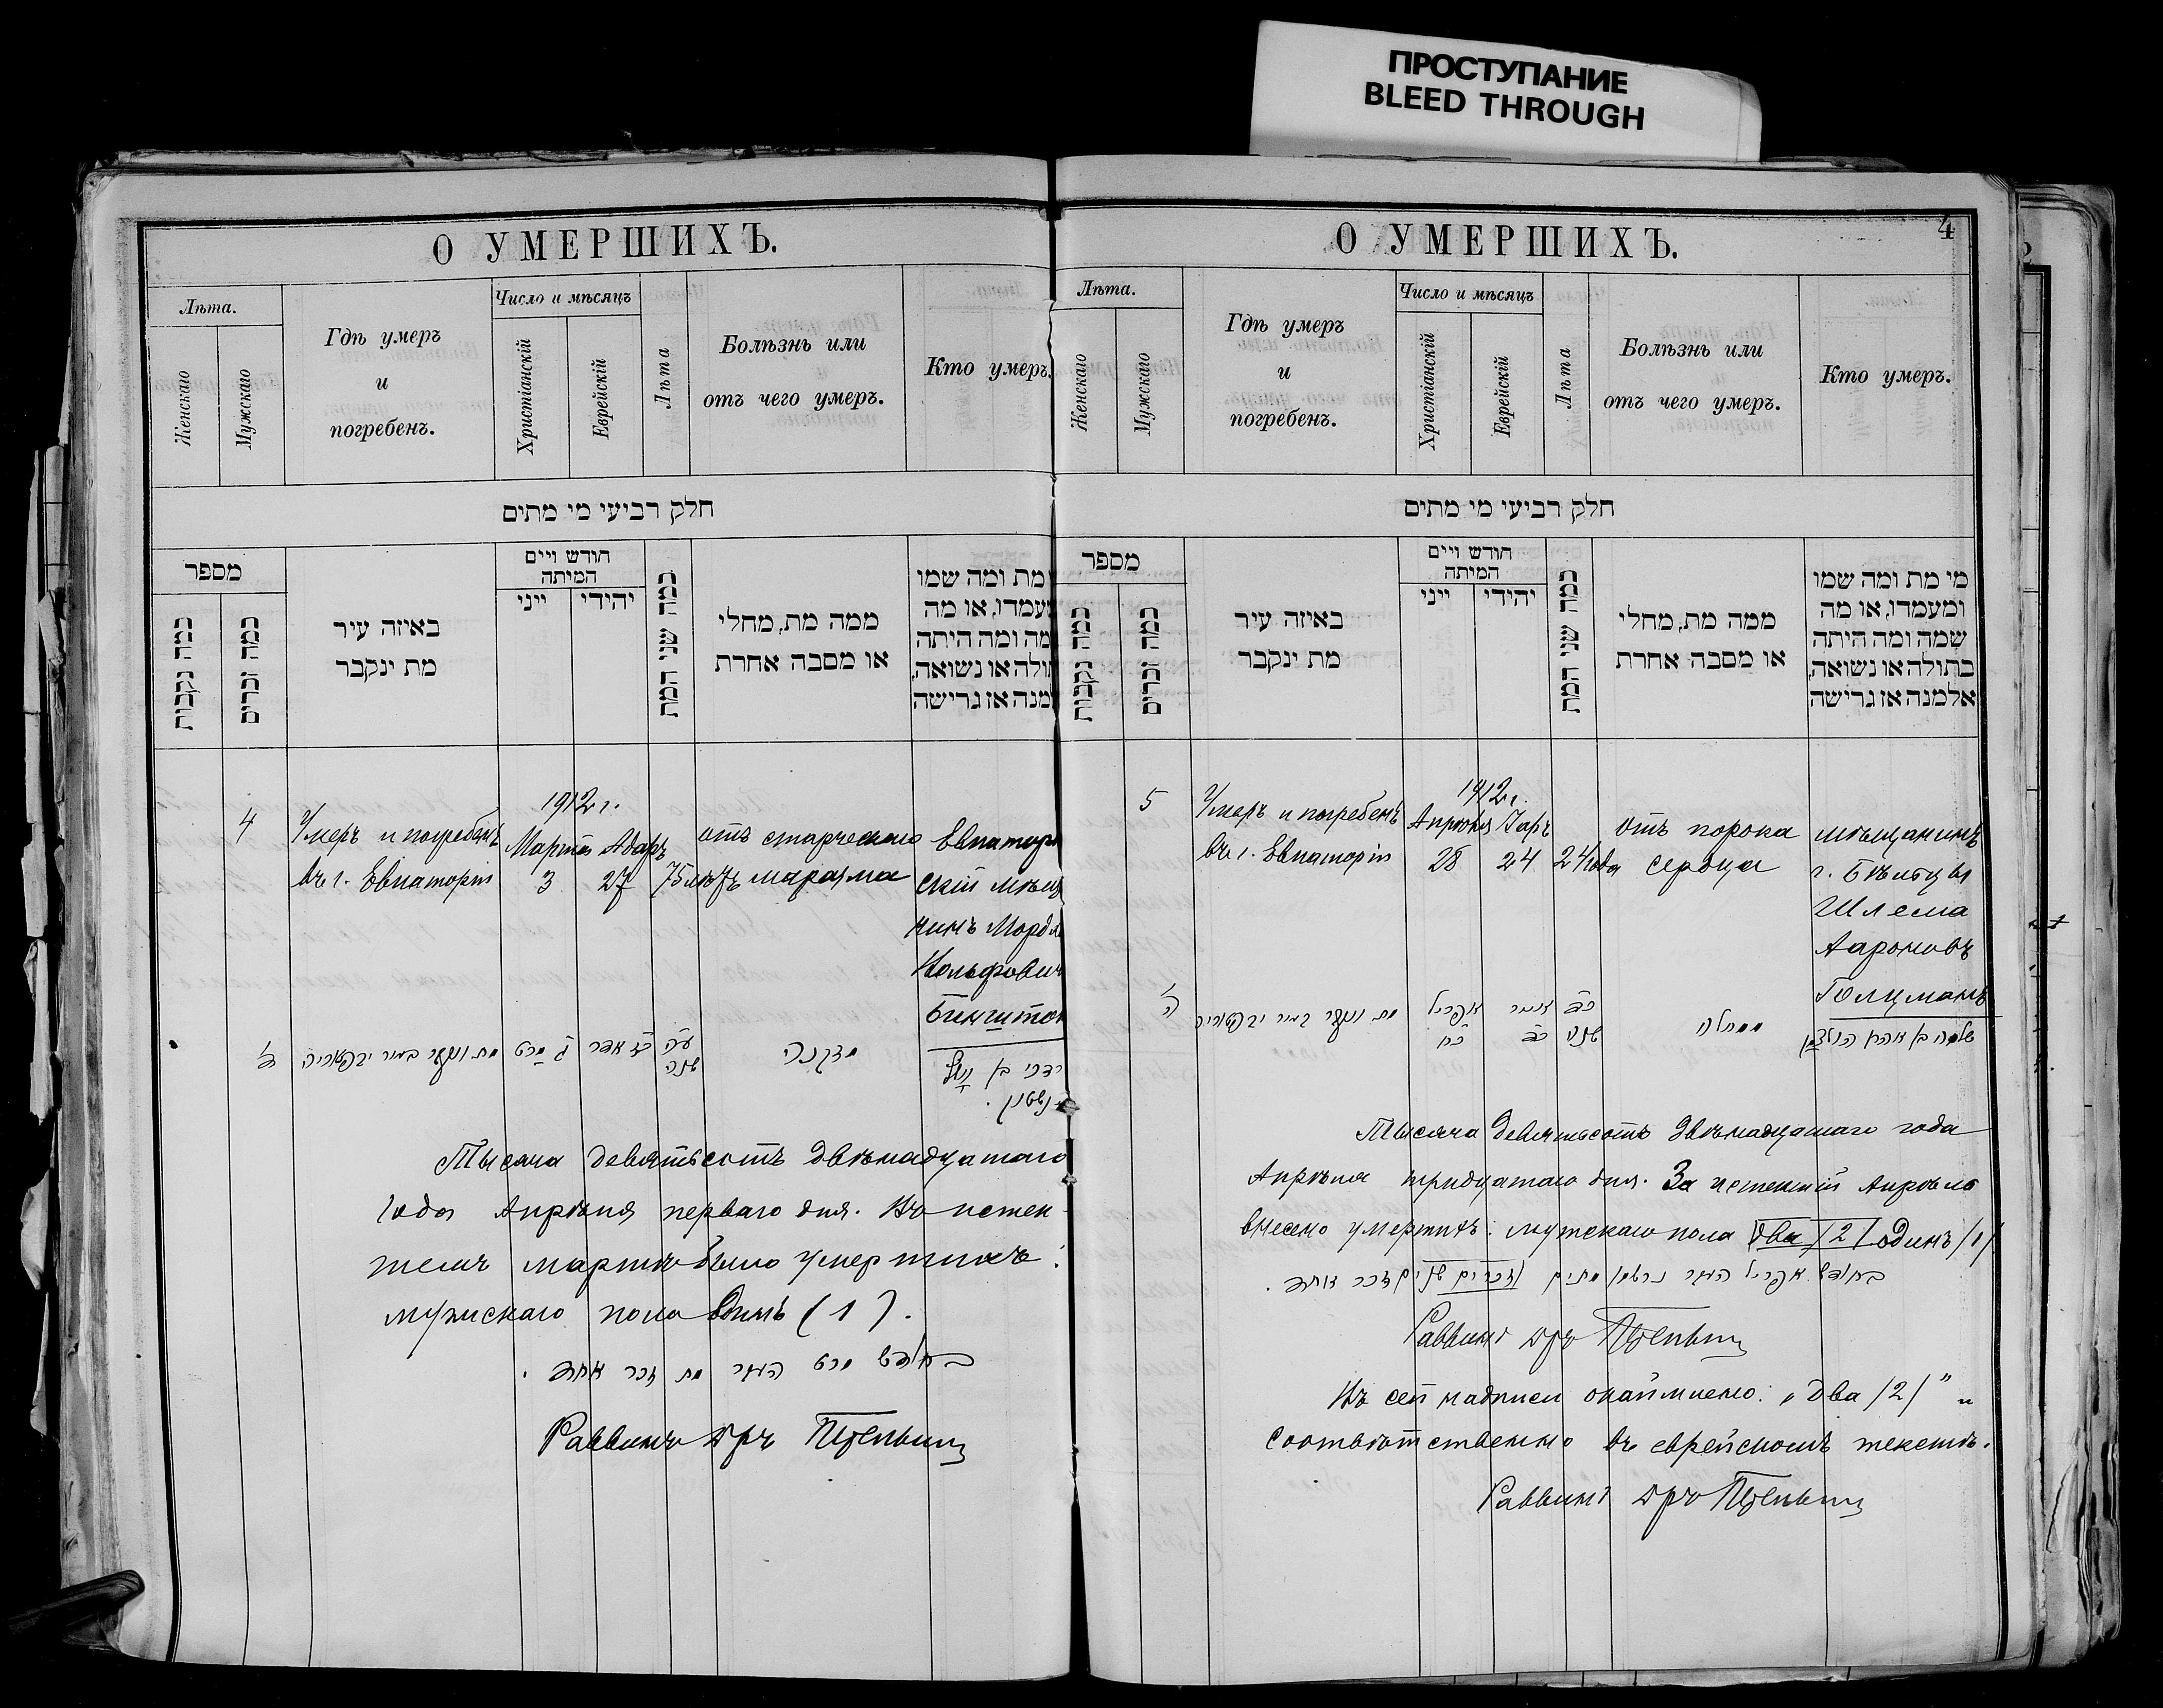 ПРОСТУПАНИЕ
BLEED THROUGH
О УМЕРШИХЪ.
Лѣта.
Женскаго
Мужскаго
Гдѣ умеръ
и
погребенъ.
Число и мѣсяцъ
Христіанскій
Еврейскій
Лѣта
Болѣзнь или
отъ чего умеръ.
Кто умеръ.
חלק רביעי מי מתים
מספר
כמה נקבות
כמה זכרים
באיזה עיר
מת ינקבר
חודש ויים
המיתה
ייני
יהידי
כמה שני המת
ממה מת, מחלי
או מסבה אחרת
מת ומה שמו
עמדו, או מה
מה ומה היתה
תולה או נשואה,
מנה אז גרישה
4
Умеръ и погребенъ
въ г. Евпаторіи
1912 г.
Мартъ Адаръ
3
27
75 лѣтъ
отъ старческаго
маразма
Евпатор
скій мѣщ
нинъ Мордх
Вольфович
מת ונקבר בעיר
ג מרט
כז אדר
עה
שנה
מזקנה
Тысяча девятьсотъ двѣнадцатаго
года Апрѣля перваго дня. Въ истек-
шемъ мартѣ было умершихъ:
мужскаго пола одинъ (1).
בחודש מרט העבר מת זכר אחד.
Раввинъ Дръ
О УМЕРШИХЪ.
4
Лѣта.
Женскаго
Мужскаго
Гдѣ умеръ
и
погребенъ.
Число и мѣсяцъ
Христіанскій
Еврейскій
Лѣта
Болѣзнь или
отъ чего умеръ.
Кто умеръ.
חלק רביעי מי מתים
מספר
כמה נקבות
כמה זכרים
באיזה עיר
מת ינקבר
חודש ויים
המיתה
ייני
יהידי
כמה שני המת
ממה מת, מחלי
או מסבה אחרת
מי מת ומה שמו
ומעמדו, או מה
שמה ומה היתה
בתולה או נשואה,
אלמנה אז גרישה
5
Умеръ и погребенъ
въ г. Евпаторіи
1912 г.
Апрѣля Іаръ
28
24
24 года
отъ порока
сердца
мѣщанинъ
г. Бѣльцы
Шлема
Аароновъ
Голцманъ
ה
מת ונקבר בעיר
אפריל
כח
אייר
כד
כד
שנה
ממחלה
שלמה בן אהרן הולצמן
Тысяча девятьсотъ двѣнадцатаго года
Апрѣля тридцатаго дня. За истекшій Апрѣль
внесено умершихъ: мужскаго пола два /2/ одинъ /1/
בחודש אפריל העבר נרשמו מתים זכרים שנים זכר אחד.
Раввинъ Дръ
Въ сей надписи окаймлено: „два /2/" и
соотвѣтственно въ еврейскомъ текстѣ.
Раввинъ Дръ